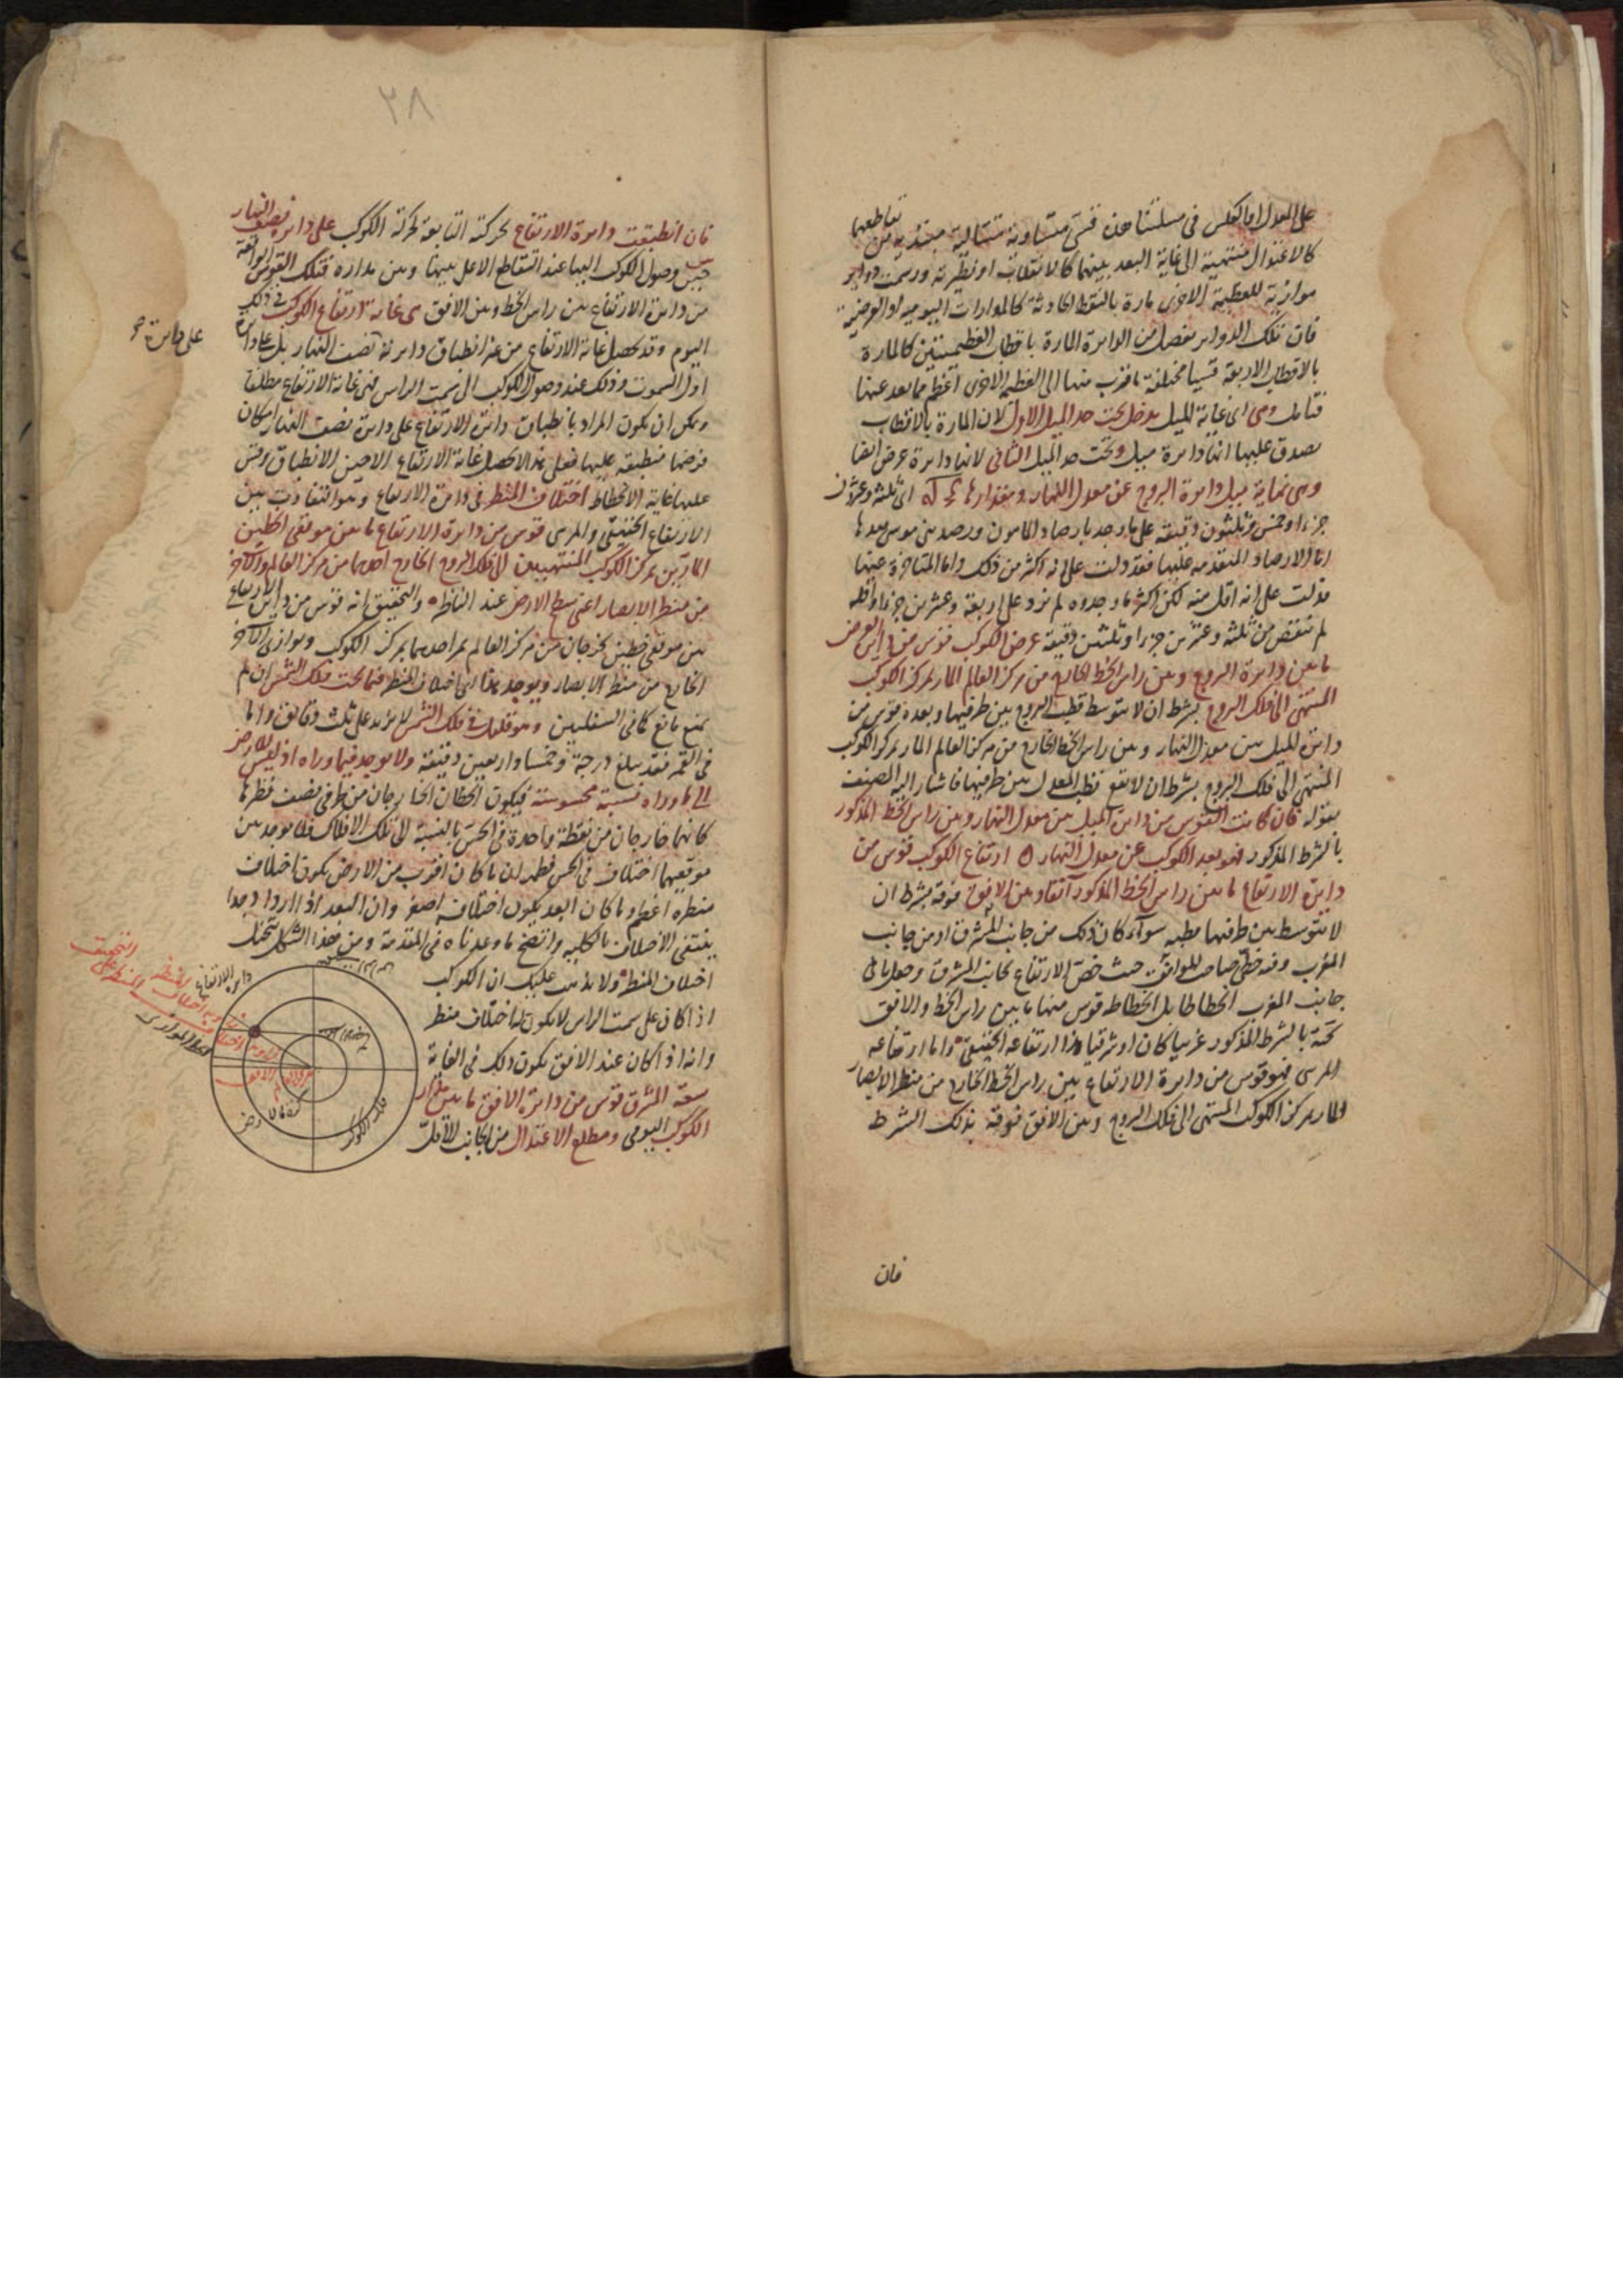 على المعدل او بالعكس في مسئلتنا هذه قسي متساوية متتالية مبتدئة من تقاطعهما
كالاعتدال منتهية الى غاية البعد بينهما كالانقلاب او نظيرته ورسمت دوائر
موازية للعظيمة الاخرى مارة بالنقط الحادثة كالمدارات اليومية او العرضية
فان تلك الدوائر تفصل من الدائرة المارة باقطاب العظيمتين كالمارة
بالاقطاب الاربعة قسيا مختلفة ما قرب منها الى العظيمة الاخرى اعظم مما بعد عنها
فتأمل وهي اي غاية الميل يدخل تحت حد الميل الاول لان المارة بالاقطاب
يصدق عليها انها دائرة ميل وتحت حد الميل الثاني لانها دائرة عرض ايضا
وهي نهاية ميل دائرة البروج عن معدل النهار ومقدارها كج له اي ثلثة وعشرون
جزءا وخمس وثلثون دقيقة على ما وجد بارصاد المامون ورصد بني موسى بعدها
اما الارصاد المتقدمة عليها فقد دلت على انه اكثر من ذلك واما المتاخرة عنها
فدلت على انه اقل منه لكن اكثر ما وجدوه لم يزد على اربعة وعشرين جزءا واقله
لم ينقص من ثلثة وعشرين جزءا وثلثين دقيقة عرض الكوكب قوس من دائرة العرض
ما بين دائرة البروج وبين راس الخط الخارج من مركز العالم المار بمركز الكوكب
المنتهي الى فلك البروج بشرط ان لا يتوسط قطب البروج بين طرفيها وبعده قوس من
دائرة الميل بين معدل النهار وبين راس الخط الخارج من مركز العالم المار بمركز الكوكب
المنتهي الى فلك البروج بشرط ان لا يقع قطب المعدل بين طرفيها فاشار اليه المصنف
بقوله فان كانت القوس من دائرة الميل بين معدل النهار وبين راس الخط المذكور
بالشرط المذكور فهو بعد الكوكب عن معدل النهار ه ارتفاع الكوكب قوس من
دائرة الارتفاع ما بين راس الخط المذكور آنفا وبين الافق فوقه بشرط ان
لا يتوسط بين طرفيها قطبه سواء كان ذلك من جانب المشرق او من جانب
المغرب وقد خطئ صاحب المواقف حيث خص الارتفاع بجانب المشرق وجعل ما في
جانب المغرب انحطاطا بل انحطاطه قوس منها ما بين راس الخط والافق
تحته بالشرط المذكور غربيا كان او شرقيا هذا ارتفاعه الحقيقي واما ارتفاعه
المرئي فهو قوس من دائرة الارتفاع بين راس الخط الخارج من منظر الابصار
المار بمركز الكوكب المنتهي الى فلك البروج وبين الافق فوقه بذلك الشرط
فان
٣٨
فان انطبقت دائرة الارتفاع بحركته التابعة لحركة الكوكب على دائرة نصف النهار
حين وصول الكوكب اليها عند التقاطع الاعلى بينها وبين مداره فتلك القوس الواقعة
من دائرة الارتفاع بين راس الخط وبين الافق هي غاية ارتفاع الكوكب في ذلك
اليوم وقد تحصل غاية الارتفاع من غير انطباق دائرته نصف النهار بل على دائرة
اول السموت وذلك عند وصول الكوكب الى سمت الراس فهي غاية الارتفاع مطلقا
ويمكن ان يكون المراد بانطباق دائرة الارتفاع على دائرة نصف النهار امكان
فرضها منطبقة عليها فعلى هذا لا تحصل غاية الارتفاع الا حين الانطباق وقس
عليها غاية الانحطاط اختلاف المنظر في دائرة الارتفاع وهو التفاوت بين
الارتفاع الحقيقي والمرئي قوس من دائرة الارتفاع ما بين موقعي الخطين
المارين بمركز الكوكب المنتهيين الى فلك البروج الخارج احدهما من مركز العالم والآخر
من منظر الابصار اعني سطح الارض عند الناظر ه والتحقيق انه قوس من دائرة الارتفاع
بين موقعي خطين يخرجان من مركز العالم يمر احدهما بمركز الكوكب ويوازي الآخر
الخارج من منظر الابصار ويوجد هذا اي اختلاف المنظر فيما تحت فلك الشمس ان لم
يمنع مانع كما في السفليين وهو قليل في فلك الشمس لا يزيد على ثلث دقائق واما
في القمر فقد يبلغ درجة وخمسا واربعين دقيقة ولا يوجد فيما وراه اذ ليس للارض
الى ما وراه نسبة محسوسة فيكون الخطان الخارجان من طرفي نصف قطرها
كانهما خارجان من نقطة واحدة في الحس بالنسبة الى تلك الافلاك فلا يوجد بين
موقعيهما اختلاف في الحس فظهر ان ما كان اقرب من الارض يكون اختلاف
منظره اعظم وما كان ابعد يكون اختلافه اصغر وان البعد اذا ازداد جدا
ينتفي الاختلاف بالكلية واتضح ما وعدناه في المقدمة ومن هذا الشكل يتخيل
اختلاف المنظر ه ولا يذهب عليك ان الكوكب
اذا كان على سمت الراس لا يكون له اختلاف منظر
وانه اذا كان عند الافق يكون ذلك في الغاية
سعة المشرق قوس من دائرة الافق ما بين مدار
الكوكب اليومي ومطلع الاعتدال من الجانب الاقل
على دائرة
دائرة الارتفاع
اختلاف المنظر على
التحقيق
اختلاف المنظر
الخط الموازي
سمت الراس
مركز العالم
الافق
كرة الارض
فلك الكوكب